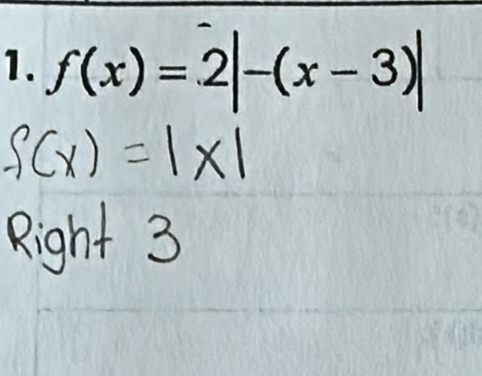 1. f(x) = 2|−(x − 3)|
f(x) = |x|
Right 3